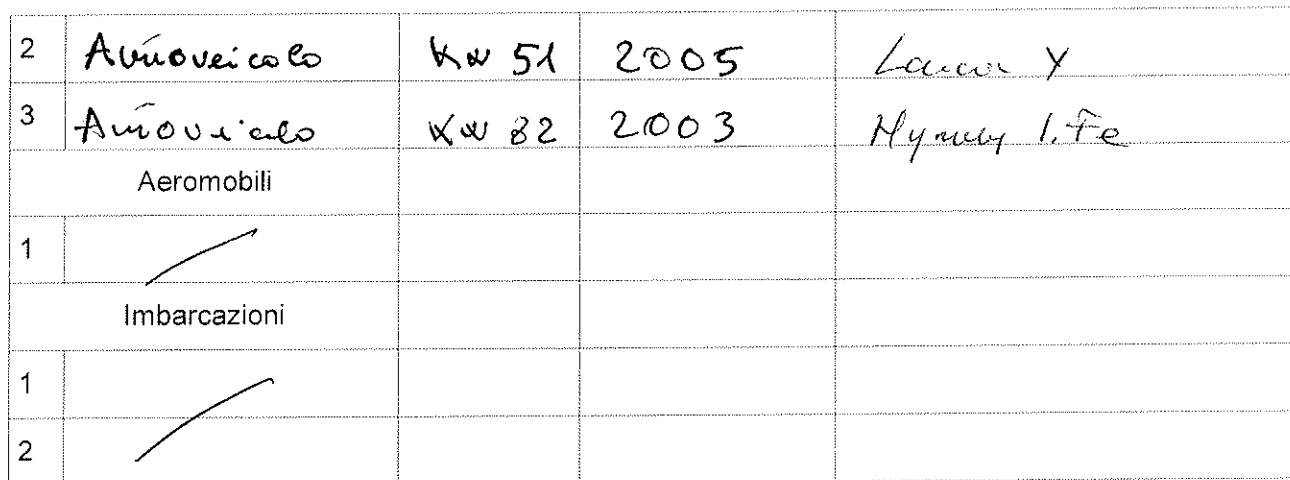 2 Autoveicolo KW 51 2005 Lancia Y
3 Autoveicolo KW 82 2003 S. Fe
Aeromobili
1
Imbarcazioni
1
2